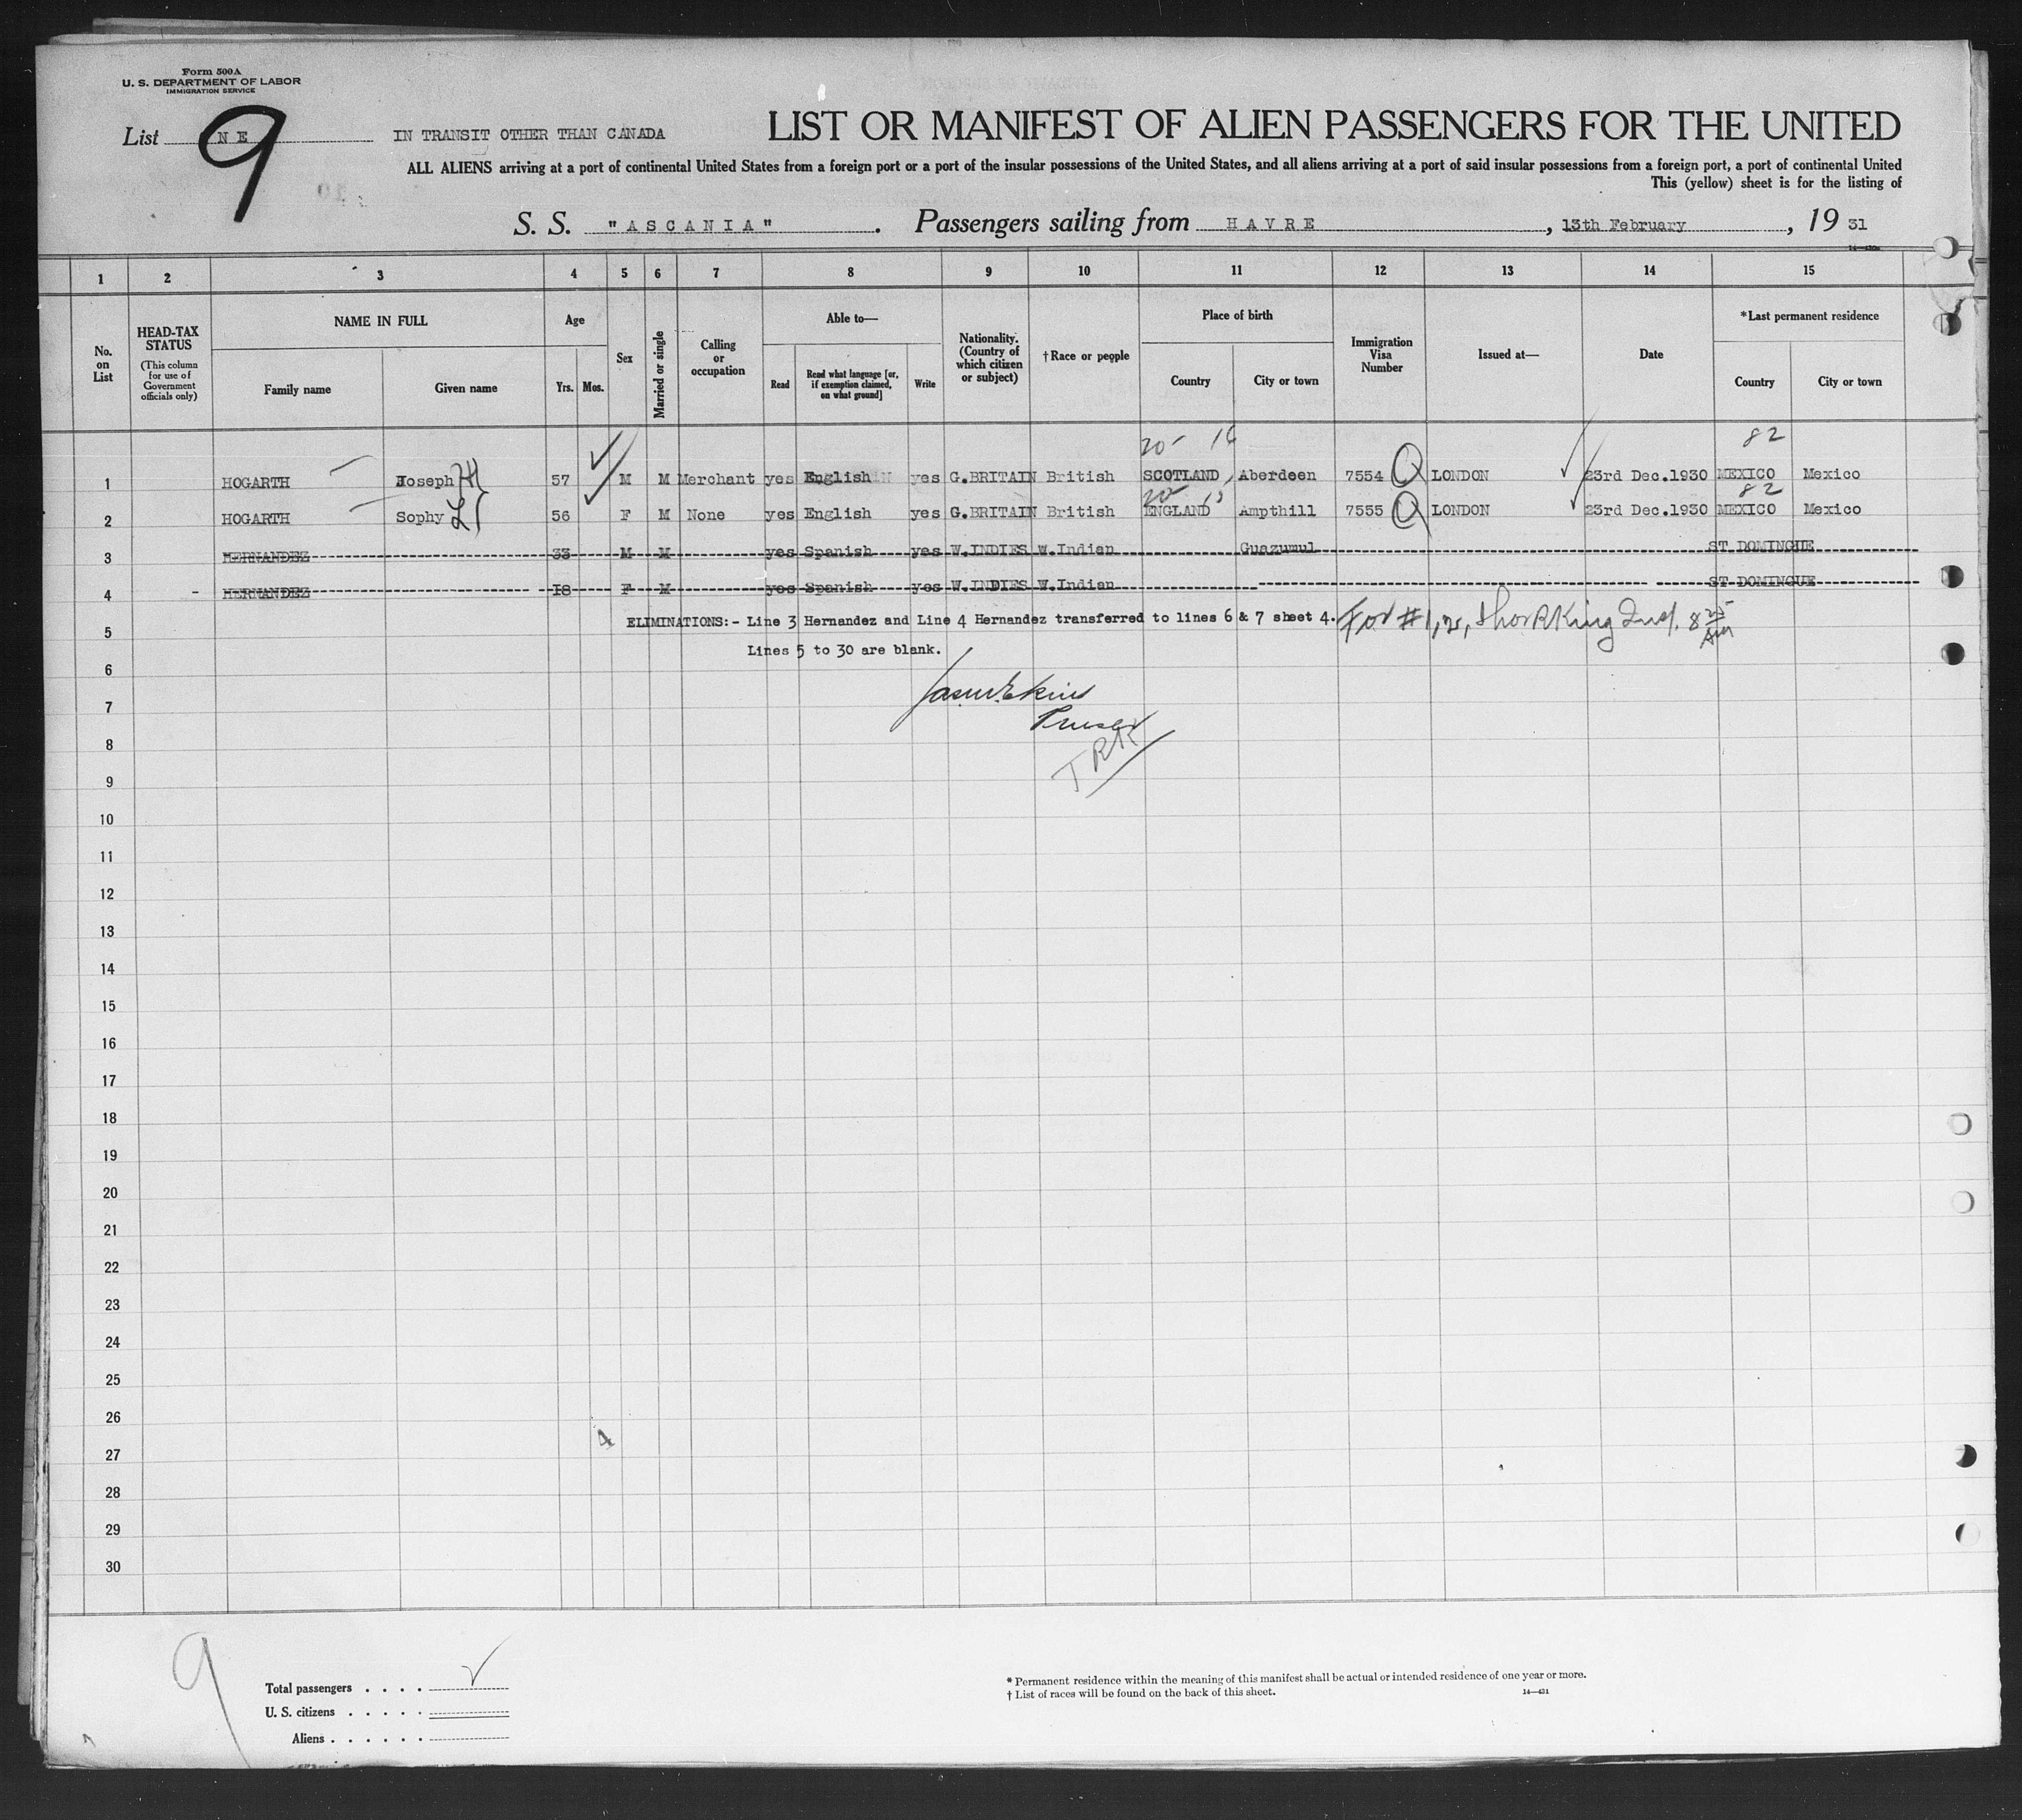 Form 500A
U. S. DEPARTMENT OF LABOR
IMMIGRATION SERVICE
List N E 9 IN TRANSIT OTHER THAN CANADA
LIST OR MANIFEST OF ALIEN PASSENGERS FOR THE UNITED
ALL ALIENS arriving at a port of continental United States from a foreign port or a port of the insular possessions of the United States, and all aliens arriving at a port of said insular possessions from a foreign port, a port of continental United
This (yellow) sheet is for the listing of
S. S. "ASCANIA". Passengers sailing from HAVRE, 13th February, 19 31
1 2 3 4 5 6 7 8 9 10 11 12 13 14 15
No. on List
HEAD-TAX STATUS
(This column for use of Government officials only)
NAME IN FULL
Family name Given name
Age
Yrs. Mos.
Sex
Married or single
Calling or occupation
Able to—
Read
Read what language [or, if exemption claimed, on what ground]
Write
Nationality. (Country of which citizen or subject)
† Race or people
Place of birth
Country City or town
Immigration Visa Number
Issued at—
Date
* Last permanent residence
Country City or town
20- 82
1 HOGARTH Joseph H 57 M M Merchant yes English yes G.BRITAIN British SCOTLAND, Aberdeen 7554 Q LONDON 23rd Dec.1930 MEXICO Mexico
82
2 HOGARTH Sophy 56 F M None yes English yes G.BRITAIN British ENGLAND Ampthill 7555 Q LONDON 23rd Dec.1930 MEXICO Mexico
3 HERNANDEZ 33 M M yes Spanish yes W.INDIES W.Indian Guazumul ST DOMINGUE
4 HERNANDEZ 18 F M yes Spanish yes W.INDIES W.Indian ST DOMINGUE
5 ELIMINATIONS:- Line 3 Hernandez and Line 4 Hernandez transferred to lines 6 & 7 sheet 4. For #1,2, Thos R King Insp. 8
Lines 5 to 30 are blank.
6
7
Purser
8
TRK
9
10
11
12
13
14
15
16
17
18
19
20
21
22
23
24
25
26
4
27
28
29
30
9
Total passengers . . . .
U. S. citizens . . . . .
Aliens . . . . . .
* Permanent residence within the meaning of this manifest shall be actual or intended residence of one year or more.
† List of races will be found on the back of this sheet. 14—431